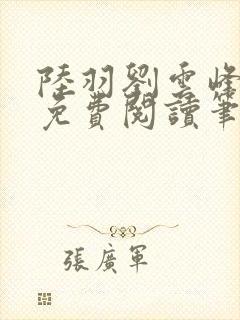 陸羽劉雲峰
免費閱讀筆
張廣軍